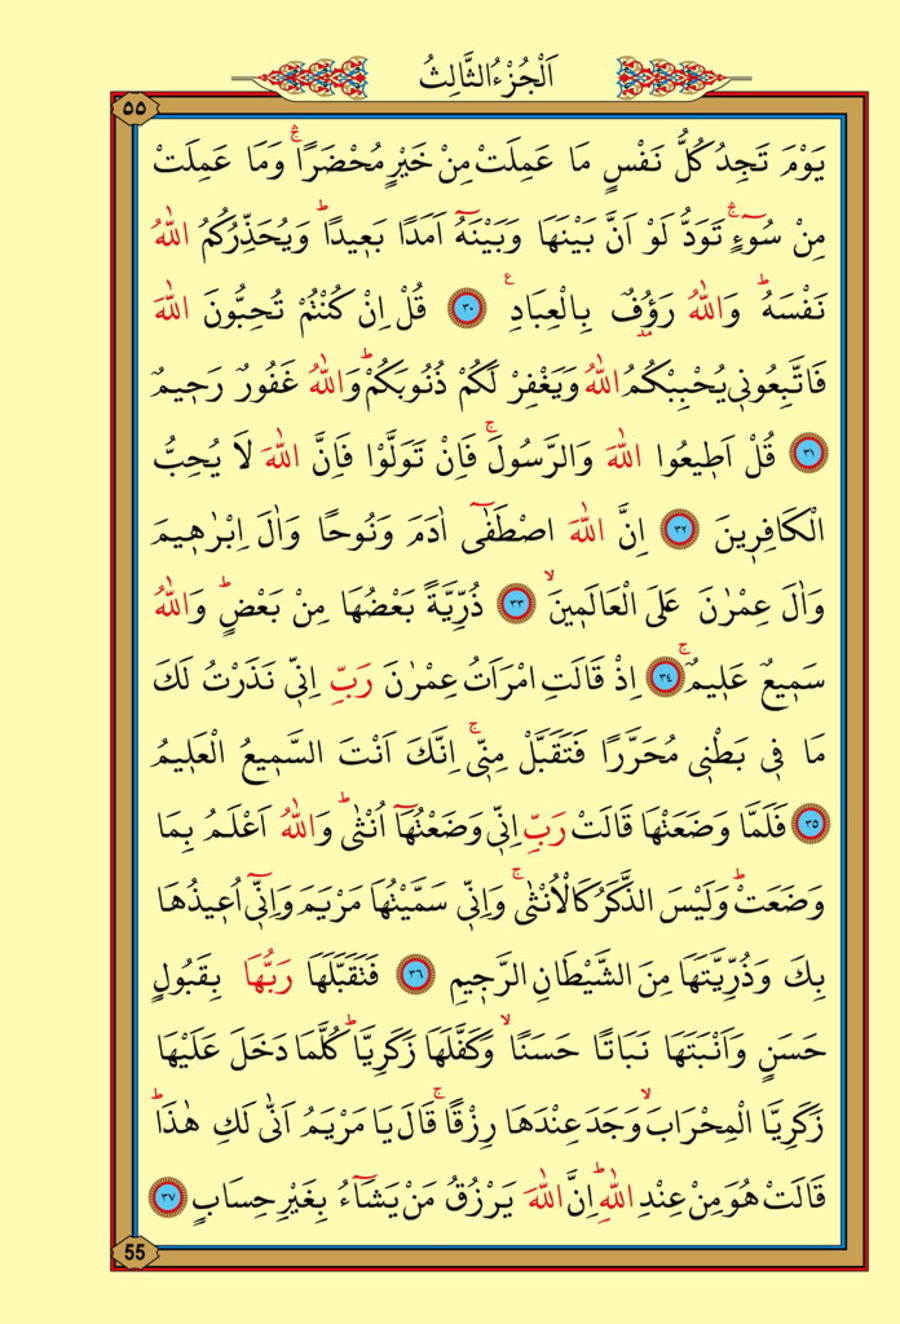 اَلْجُزْءُ الثَّالِثُ
٥٥
يَوْمَ تَجِدُ كُلُّ نَفْسٍ مَا عَمِلَتْ مِنْ خَيْرٍ مُحْضَرًاۚ وَمَا عَمِلَتْ
مِنْ سُوٓءٍۚ تَوَدُّ لَوْ اَنَّ بَيْنَهَا وَبَيْنَهُٓ اَمَدًا بَعٖيدًاؕ وَيُحَذِّرُكُمُ اللّٰهُ
نَفْسَهُؕ وَاللّٰهُ رَؤُفٌ بِالْعِبَادِࣖ ﴿٣٠﴾ قُلْ اِنْ كُنْتُمْ تُحِبُّونَ اللّٰهَ
فَاتَّبِعُونٖي يُحْبِبْكُمُ اللّٰهُ وَيَغْفِرْ لَكُمْ ذُنُوبَكُمْؕ وَاللّٰهُ غَفُورٌ رَحٖيمٌ
﴿٣١﴾ قُلْ اَطٖيعُوا اللّٰهَ وَالرَّسُولَۚ فَاِنْ تَوَلَّوْا فَاِنَّ اللّٰهَ لَا يُحِبُّ
الْكَافِرٖينَ ﴿٣٢﴾ اِنَّ اللّٰهَ اصْطَفٰٓى اٰدَمَ وَنُوحًا وَاٰلَ اِبْرٰهٖيمَ
وَاٰلَ عِمْرٰنَ عَلَى الْعَالَمٖينَۙ ﴿٣٣﴾ ذُرِّيَّةً بَعْضُهَا مِنْ بَعْضٍؕ وَاللّٰهُ
سَمٖيعٌ عَلٖيمٌۚ ﴿٣٤﴾ اِذْ قَالَتِ امْرَاَتُ عِمْرٰنَ رَبِّ اِنّٖي نَذَرْتُ لَكَ
مَا فٖي بَطْنٖي مُحَرَّرًا فَتَقَبَّلْ مِنّٖيۚ اِنَّكَ اَنْتَ السَّمٖيعُ الْعَلٖيمُ
﴿٣٥﴾ فَلَمَّا وَضَعَتْهَا قَالَتْ رَبِّ اِنّٖي وَضَعْتُهَٓا اُنْثٰىؕ وَاللّٰهُ اَعْلَمُ بِمَا
وَضَعَتْؕ وَلَيْسَ الذَّكَرُ كَالْاُنْثٰىۚ وَاِنّٖي سَمَّيْتُهَا مَرْيَمَ وَاِنّٖٓي اُعٖيذُهَا
بِكَ وَذُرِّيَّتَهَا مِنَ الشَّيْطَانِ الرَّجٖيمِ ﴿٣٦﴾ فَتَقَبَّلَهَا رَبُّهَا بِقَبُولٍ
حَسَنٍ وَاَنْبَتَهَا نَبَاتًا حَسَنًاۙ وَكَفَّلَهَا زَكَرِيَّاؕ كُلَّمَا دَخَلَ عَلَيْهَا
زَكَرِيَّا الْمِحْرَابَۙ وَجَدَ عِنْدَهَا رِزْقًاۚ قَالَ يَا مَرْيَمُ اَنّٰى لَكِ هٰذَاؕ
قَالَتْ هُوَ مِنْ عِنْدِ اللّٰهِؕ اِنَّ اللّٰهَ يَرْزُقُ مَنْ يَشَٓاءُ بِغَيْرِ حِسَابٍ ﴿٣٧﴾
55